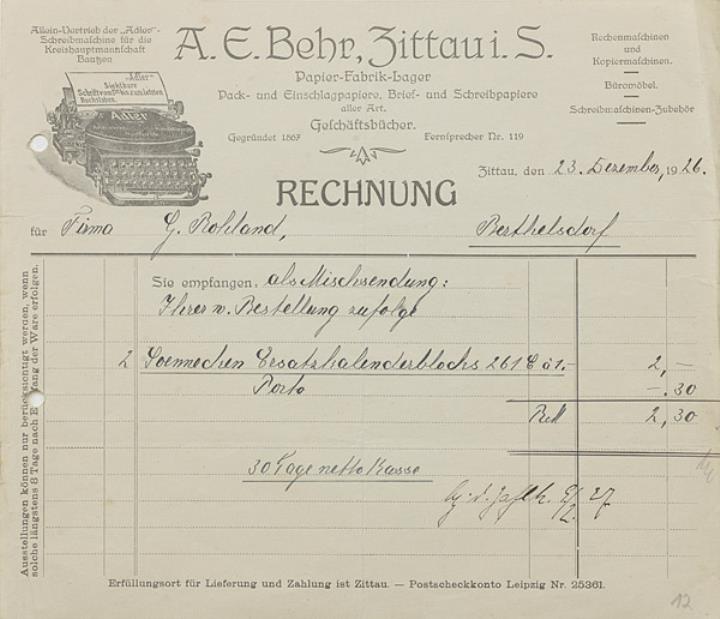 Allein-Vertrieb der „Adler"-
Schreibmaschine für die
Kreishauptmannschaft
Bautzen
„Adler"
Sichtbare
Schrift vom ersten bis zum letzten
Buchstaben.
Adler
A. E. Behr, Zittau i. S.
Papier-Fabrik-Lager
Pack- und Einschlagpapiere, Brief- und Schreibpapiere
aller Art.
Geschäftsbücher.
Gegründet 1867 Fernsprecher Nr. 119
Rechenmaschinen
und
Kopiermaschinen.
Büromöbel.
Schreibmaschinen-Zubehör
Zittau, den 23. Dezember, 1926.
RECHNUNG
für Firma G. Rohland, Berthelsdorf
Sie empfangen als Mischsendung:
Ihrer w. Bestellung zufolge
2 Soennecken Ersatzkalenderblocks 261 E à 1.- 2,—
Porto —.30
RM 2,30
30 Tage netto Kasse
27
Ausstellungen können nur berücksichtigt werden, wenn
solche längstens 8 Tage nach Empfang der Ware erfolgen.
Erfüllungsort für Lieferung und Zahlung ist Zittau. — Postscheckkonto Leipzig Nr. 25361.
12